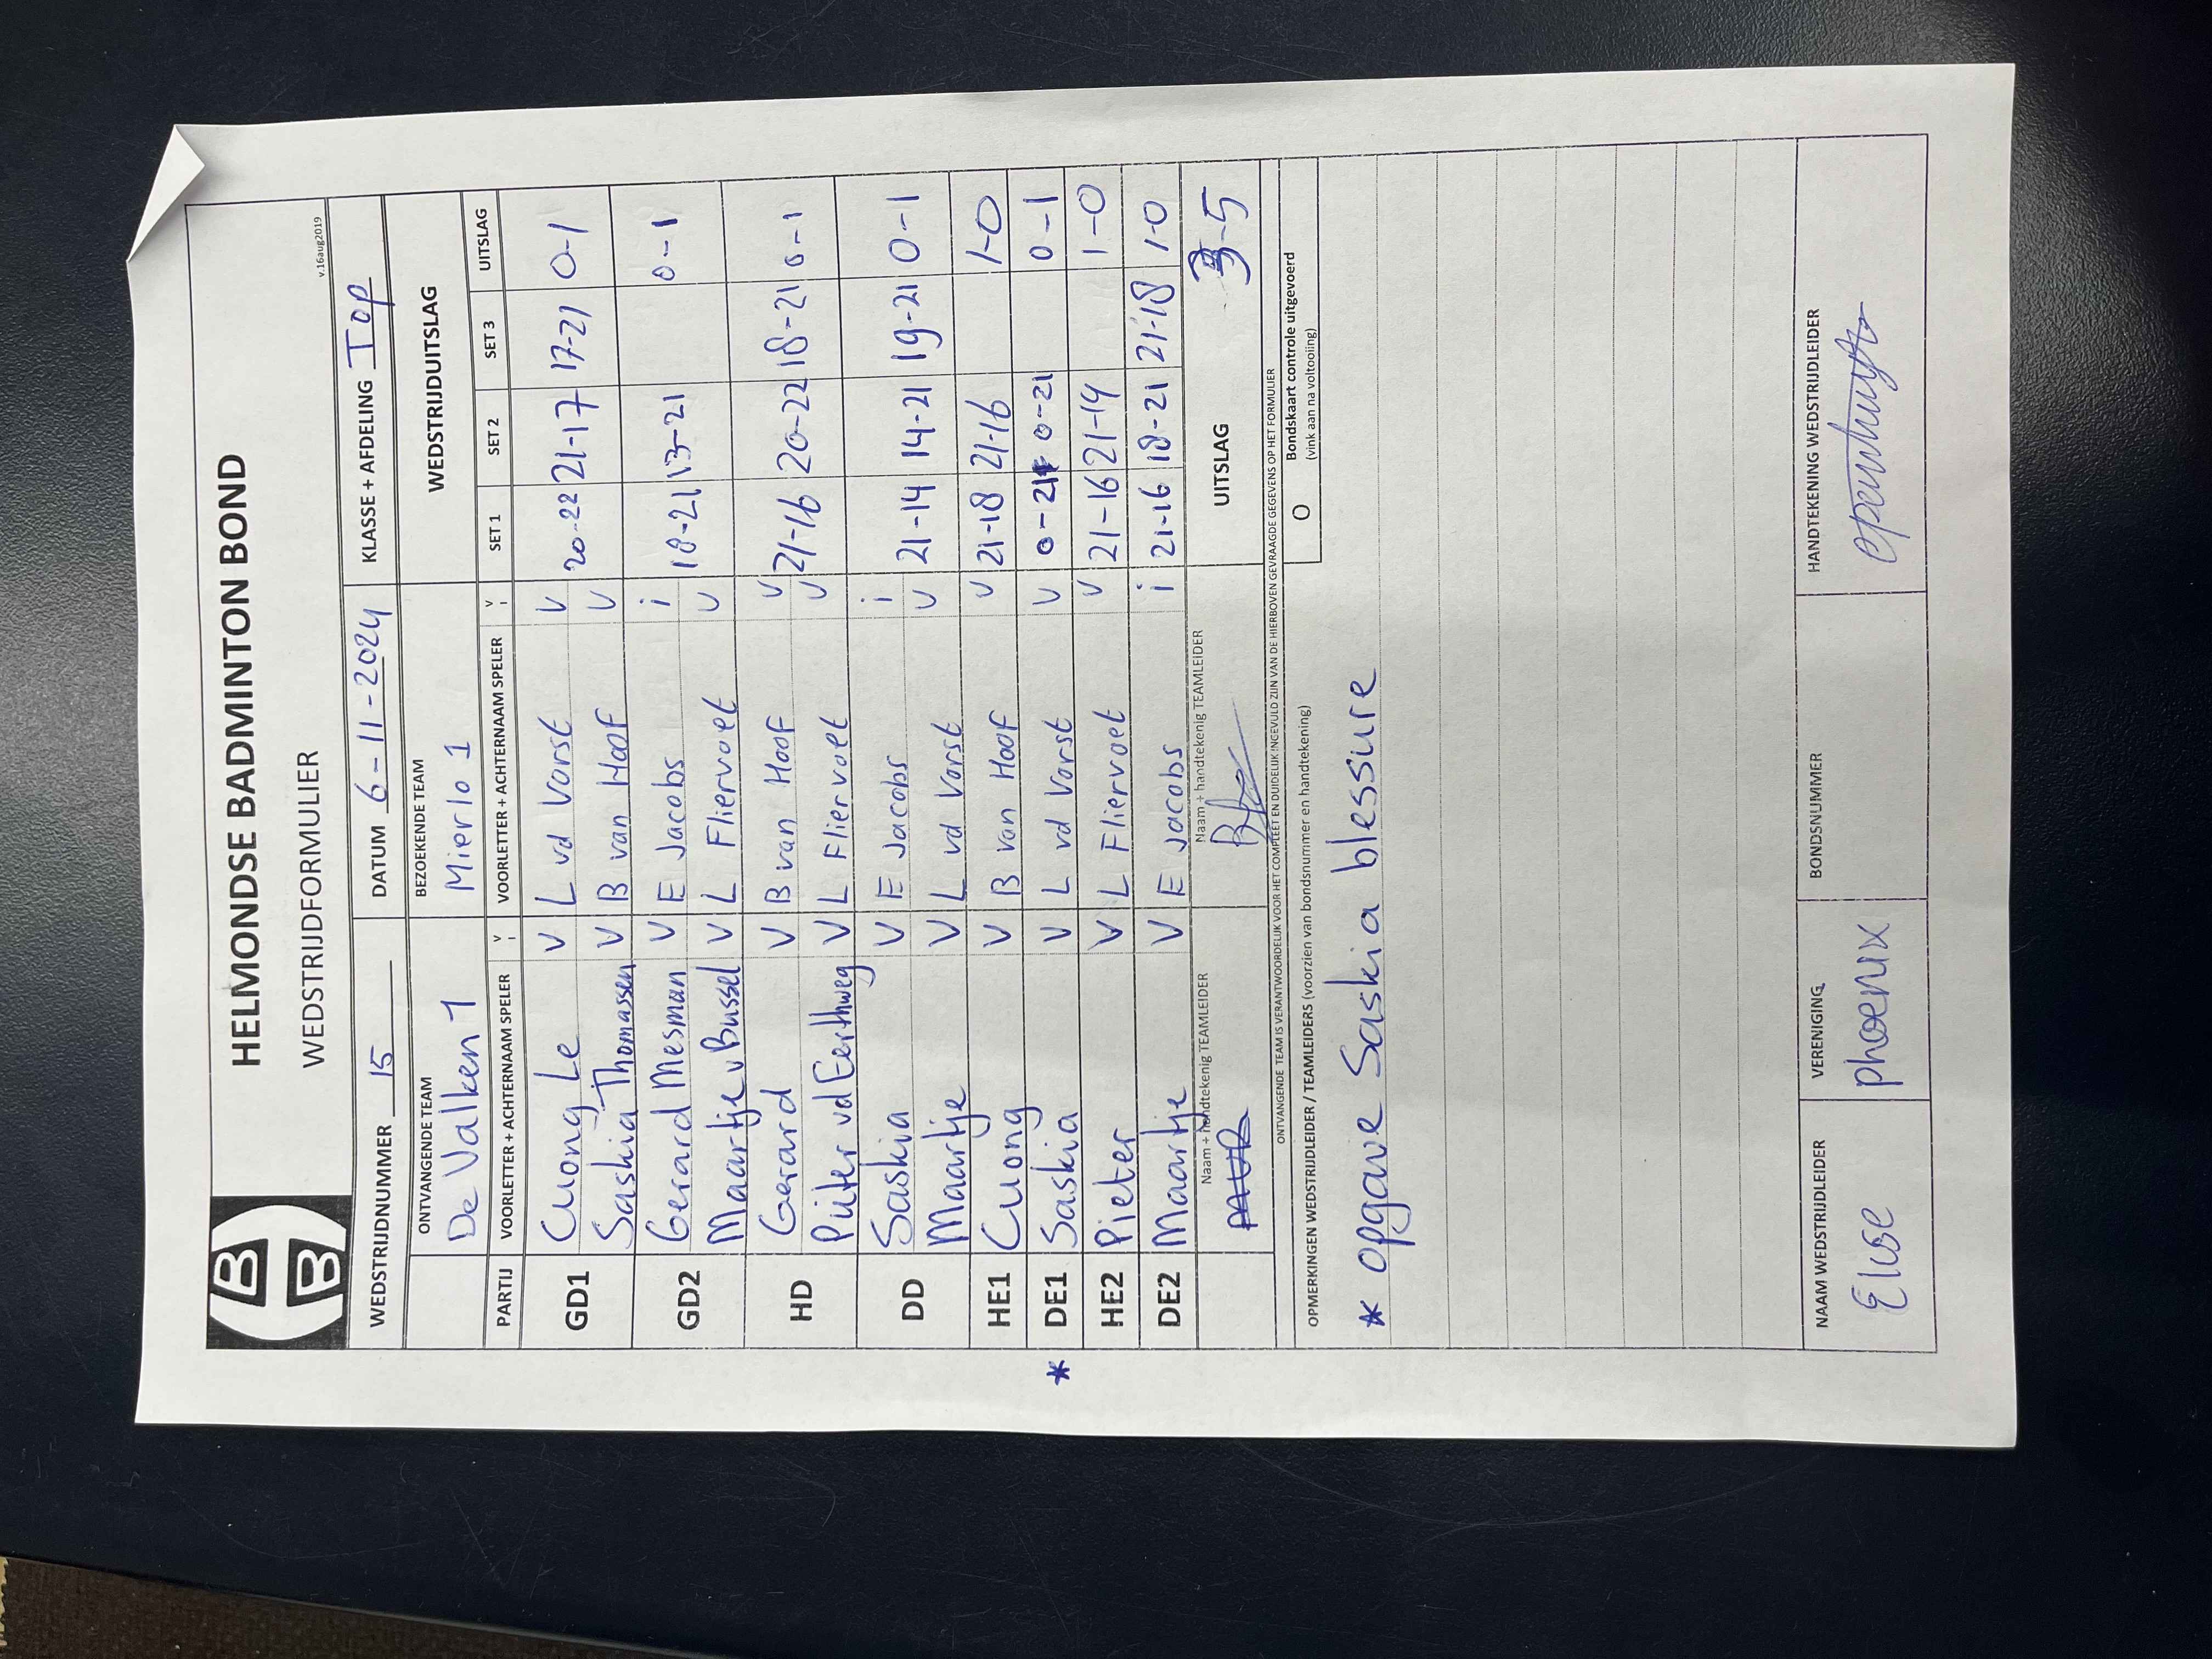 HELMONDSE BADMINTON BOND
WEDSTRIJDFORMULIER
v.16aug2019
WEDSTRIJDNUMMER 15 DATUM 6-11-2024 KLASSE + AFDELING Top
ONTVANGENDE TEAM BEZOEKENDE TEAM WEDSTRIJDUITSLAG
De Valken 1 Mierlo 1
PARTIJ VOORLETTER + ACHTERNAAM SPELER V I VOORLETTER + ACHTERNAAM SPELER V I SET 1 SET 2 SET 3 UITSLAG
GD1 Cuong Le V L vd Vorst V 20-22 21-17 17-21 0-1
Saskia Thomassen V B van Hoof V
GD2 Gerard Mesman V E Jacobs i 18-21 13-21 0-1
Maartje v Bussel V L Fliervoet V
HD Gerard V B van Hoof V 21-16 20-22 18-21 0-1
Pieter vd Eerthweg V L Fliervoet V
DD Saskia V E Jacobs i 21-14 14-21 19-21 0-1
Maartje V L vd Vorst V
HE1 Cuong V B van Hoof V 21-18 21-16 1-0
* DE1 Saskia V L vd Vorst V 0-21 0-21 0-1
HE2 Pieter V L Fliervoet V 21-16 21-14 1-0
DE2 Maartje V E Jacobs i 21-16 18-21 21-18 1-0
Naam + handtekenig TEAMLEIDER Naam + handtekenig TEAMLEIDER UITSLAG 3-5
ONTVANGENDE TEAM IS VERANTWOORDELIJK VOOR HET COMPLEET EN DUIDELIJK INGEVULD ZIJN VAN DE HIERBOVEN GEVRAAGDE GEGEVENS OP HET FORMULIER
OPMERKINGEN WEDSTRIJDLEIDER / TEAMLEIDERS (voorzien van bondsnummer en handtekening) O Bondskaart controle uitgevoerd
(vink aan na voltooiing)
* opgave Saskia blessure
NAAM WEDSTRIJDLEIDER VERENIGING BONDSNUMMER HANDTEKENING WEDSTRIJDLEIDER
Elise phoenix